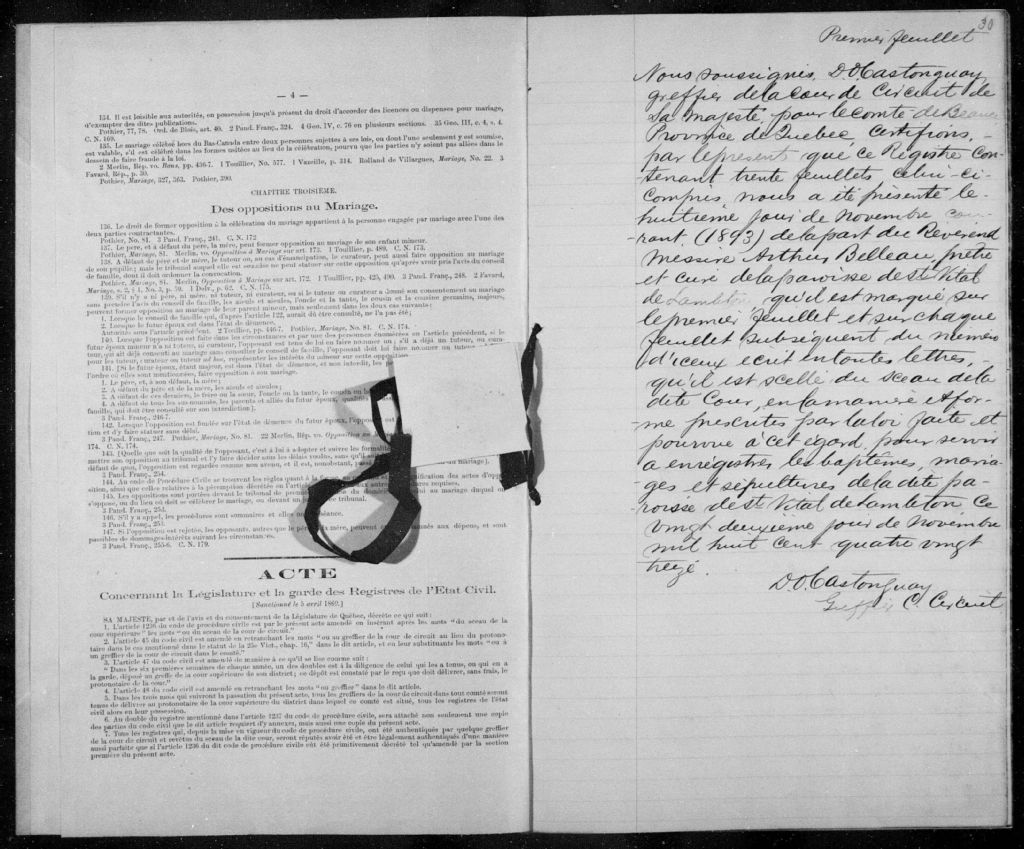 — 4 —
134. Il est loisible aux autorités, en possession jusqu'à présent du droit d'accorder des licences ou dispenses pour mariage,
d'exempter des dites publications.
Pothier, 77, 78. Ord. de Blois, art. 40. 2 Pand. Franç., 324. 4 Geo. IV, c. 76 en plusieurs sections. 35 Geo. III, c. 4, s. 4.
C. N. 169.
135. Le mariage célébré hors du Bas-Canada entre deux personnes sujettes à ses lois, ou dont l'une seulement y est soumise,
est valable, s'il est célébré dans les formes usitées au lieu de la célébration, pourvu que les parties n'y soient pas allées dans le
dessein de faire fraude à la loi.
2 Merlin, Rép. vo. Bans, pp. 436-7. 1 Touillier, No. 577. 1 Vazeille, p. 314. Rolland de Villargues, Mariage, No. 22. 3
Favard, Rép., p. 30.
Pothier, Mariage, 327, 363. Pothier, 390.
CHAPITRE TROISIÈME.
Des oppositions au Mariage.
136. Le droit de former opposition à la célébration du mariage appartient à la personne engagée par mariage avec l'une des
deux parties contractantes.
Pothier, No. 81. 3 Pand. Franç., 241. C. N. 172
137. Le père, et à défaut du père, la mère, peut former opposition au mariage de son enfant mineur.
Pothier, Mariage, 81. Merlin, vo. Opposition à Mariage sur art. 173. 1 Touillier, p. 489. C. N. 173.
138. A défaut de père et de mère, le tuteur ou, au cas d'émancipation, le curateur, peut aussi faire opposition au mariage
de son pupille; mais le tribunal auquel elle est soumise ne peut statuer sur cette opposition qu'après avoir pris l'avis du conseil
de famille, dont il doit ordonner la convocation.
Pothier, Mariage, 81. Merlin, Opposition à Mariage sur art. 172. 1 Touillier, pp. 425, 490. 3 Pand. Franç., 248. 2 Favard,
Mariage, s. 2, § 1, No. 3, p. 50. 1 Delv., p. 62. C. N. 175.
139. S'il n'y a ni père, ni mère, ni tuteur, ni curateur, ou si le tuteur ou curateur a donné son consentement au mariage
sans prendre l'avis du conseil de famille, les aïeuls et aïeules, l'oncle et la tante, le cousin et la cousine germains, majeurs,
peuvent former opposition au mariage de leur parent mineur, mais seulement dans les deux cas suivants:
1. Lorsque le conseil de famille qui, d'après l'article 122, aurait dû être consulté, ne l'a pas été;
2. Lorsque le futur époux est dans l'état de démence.
Autorités sous l'article précédent. 2 Touillier, pp. 446-7. Pothier, Mariage, No. 81. C. N. 174.
140. Lorsque l'opposition est faite dans les circonstances et par une des personnes énumérées en l'article précédent, si le
futur époux mineur n'a ni tuteur, ni curateur, l'opposant est tenu de lui en faire nommer un; s'il a déjà un tuteur, ou cura-
teur, qui ait déjà consenti au mariage sans consulter le conseil de famille, l'opposant doit lui faire nommer un tuteur
pour les tuteur, curateur ou tuteur ad hoc, représenter les intérêts du mineur sur cette
141. [Si le futur époux, étant majeur, est dans l'état de démence, et non interdit, les
l'ordre où elles sont mentionnées, faire opposition à son mariage.
1. Le père, et, à son défaut, la mère;
2. A défaut du père et de la mère, les aïeuls et aïeules;
3. A défaut de ces derniers, le frère ou la sœur, l'oncle ou la tante, le cousin ou
4. A défaut de tous les sus-nommés, les parents et alliés du futur époux,
famille, qui doit être consulté sur son interdiction].
3 Pand. Franç., 246-7.
142. Lorsque l'opposition est fondée sur l'état de démence du futur époux, l'opposant est
tion et d'y faire statuer sans délai.
3 Pand. Franç., 247. Pothier, Mariage, No. 81. 22 Merlin, Rép. vo. Opposition au
174. C. N. 174.
143. [Quelle que soit la qualité de l'opposant, c'est à lui à adopter et suivre les formalités
mettre son opposition au tribunal et l'y faire décider sous les délais voulus, sans qu'il
défaut de quoi, l'opposition est regardée comme non avenue, et il est, nonobstant, passé au mariage].
3 Pand. Franç., 254.
144. Au Code de Procédure Civile se trouvent les règles quant à la des actes d'oppo-
sition, ainsi que celles relatives à la péremption décrétée en l'article requises.
145. Les oppositions sont portées devant le tribunal de au mariage duquel on
s'oppose, ou du lieu où doit se célébrer le mariage, ou devant un tribunal.
3 Pand. Franç., 253.
146. S'il y a appel, les procédures sont sommaires et elles
3 Pand. Franç., 253.
147. Si l'opposition est rejetée, les opposants, autres que le père mère, peuvent aux dépens, et sont
passibles de dommages-intérêts suivant les circonstances.
3 Pand. Franç., 255-6. C. N. 179.
ACTE
Concernant la Législature et la garde des Registres de l'Etat Civil.
[Sanctionné le 5 avril 1869.]
SA MAJESTÉ, par et de l'avis et du consentement de la Législature de Québec, décrète ce qui suit:
1. L'article 1236 du code de procédure civile est par le présent acte amendé en insérant après les mots "du sceau de la
cour supérieure" les mots "ou du sceau de la cour de circuit."
2. L'article 45 du code civil est amendé en retranchant les mots "ou au greffier de la cour de circuit au lieu du protono-
taire dans le cas mentionné dans le statut de la 25e Vict., chap. 16," dans le dit article, et en leur substituants les mots "ou à
un greffier de la cour de circuit dans le comté."
3. L'article 47 du code civil est amendé de manière à ce qu'il se lise comme suit:
"Dans les six premières semaines de chaque année, un des doubles est à la diligence de celui qui les a tenus, ou qui en a
la garde, déposé au greffe de la cour supérieure de son district; ce dépôt est constaté par le reçu que doit délivrer, sans frais, le
protonotaire de la cour."
4. L'article 48 du code civil est amendé en retranchant les mots "ou greffier" dans le dit article.
5. Dans les trois mois qui suivront la passation du présent acte, tous les greffiers de la cour de circuit dans tout comté seront
tenus de délivrer au protonotaire de la cour supérieure du district dans lequel ce comté est situé, tous les registres de l'état
civil alors en leur possession.
6. Au double du registre mentionné dans l'article 1237 du code de procédure civile, sera attaché non seulement une copie
des parties du code civil que le dit article requiert d'y annexer, mais aussi une copie du présent acte.
7. Tous les registres qui, depuis la mise en vigueur du code de procédure civile, ont été authentiqués par quelque greffier
de la cour de circuit et revêtus du sceau de la dite cour, seront réputés avoir été et être légalement authentiqués d'une manière
aussi parfaite que si l'article 1236 du dit code de procédure civile eût été primitivement décrété tel qu'amendé par la section
première du présent acte.
30
Premier feuillet
Nous soussignés, D. O. Castonguay,
greffier de la cour de Circuit de
Sa majesté, pour le comté de Beauce
Province de Quebec Certifions,
par le présent que ce Registre con-
tenant trente feuillets celui-ci
compris, nous a été présenté le
huitième jour de novembre cou-
rant, (1893) de la part du Reverend
messire Arthur Belleau, prêtre
et curé de la paroisse de St. Vital
de Lambton qu'il est marqué sur
le premier feuillet et sur chaque
feuillet subséquent du numéro
d'iceux ecrit en toutes lettres,
qu'il est scellé du sceau de la
dite Cour, en la manière et for-
me prescrites par la loi faite et
pourvue à cet égard, pour servir
a enregistrer les baptêmes, maria-
ges et sépultures de la dite pa-
roisse de St. Vital de Lambton Ce
vingt deuxième jour de Novembre
mil huit cent quatre vingt
treize.
D. O. Castonguay
Greffier C. Circuit